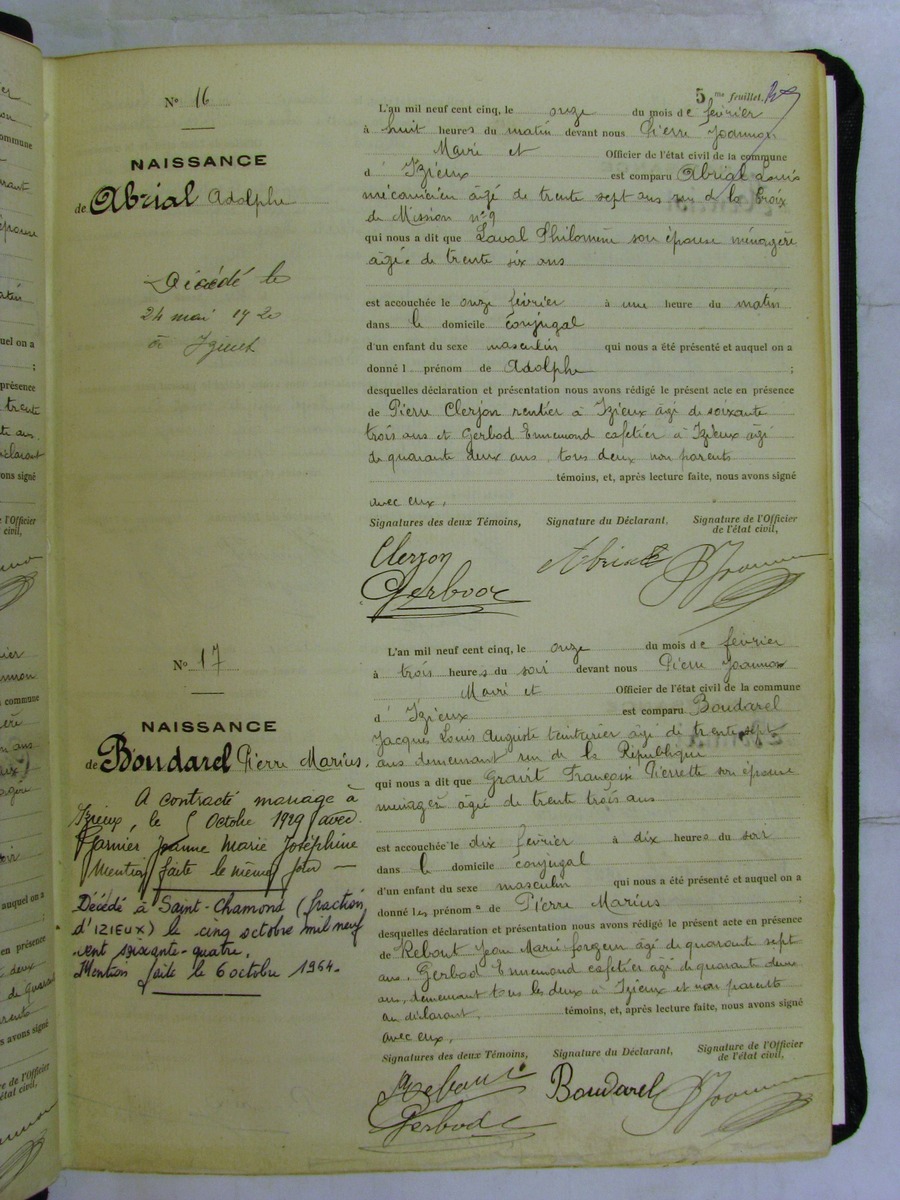 5 me feuillet.
N° 16
NAISSANCE
de Abrial Adolphe
Décédé le
24 mai 1920
à
L'an mil neuf cent cinq, le onze du mois de février
à huit heures du matin devant nous Pierre Joannon
Maire et Officier de l'état civil de la commune
d' Izieux est comparu Abrial Louis
mécanicien âgé de trente sept ans rue de la Croix
de Mission n° 9
qui nous a dit que Laval Philomène son épouse ménagère
âgée de trente six ans
est accouchée le onze février à une heure du matin
dans le domicile conjugal
d'un enfant du sexe masculin qui nous a été présenté et auquel on a
donné l prénom de Adolphe ;
desquelles déclaration et présentation nous avons rédigé le présent acte en présence
de Pierre Clerjon rentier à Izieux âgé de soixante
trois ans et Gerbod Ennemond cafetier à Izieux âgé
de quarante deux ans, tous deux non parents
témoins, et, après lecture faite, nous avons signé
avec eux,
Signatures des deux Témoins, Signature du Déclarant, Signature de l'Officier
de l'état civil,
Clerjon Abrial Joannon
Gerbod
N° 17
NAISSANCE
de Boudarel Pierre Marius.
A contracté mariage à
Izieux, le 5 Octobre 1929 avec
Garnier Jeanne Marie Joséphine
Mention faite le même jour —
Décédé à Saint-Chamond (fraction
d'IZIEUX) le cinq octobre mil neuf
cent soixante-quatre.
Mention faite le 6 octobre 1964.
L'an mil neuf cent cinq, le onze du mois de février
à trois heures du soir devant nous Pierre Joannon
Maire et Officier de l'état civil de la commune
d' Izieux est comparu Boudarel
Jacques Louis Auguste teinturier âgé de trente sept
ans demeurant rue de la République
qui nous a dit que Françoise Pierrette son épouse
ménagère âgée de trente trois ans
est accouchée le dix février à dix heures du soir
dans le domicile conjugal
d'un enfant du sexe masculin qui nous a été présenté et auquel on a
donné les prénoms de Pierre Marius ;
desquelles déclaration et présentation nous avons rédigé le présent acte en présence
de Rebout Jean Marie forgeur âgé de quarante sept
ans, Gerbod Ennemond cafetier âgé de quarante deux
ans, demeurant tous les deux à Izieux et non parents
au déclarant, témoins, et, après lecture faite, nous avons signé
avec eux,
Signatures des deux Témoins, Signature du Déclarant, Signature de l'Officier
de l'état civil,
Rebout Boudarel Joannon
Gerbod